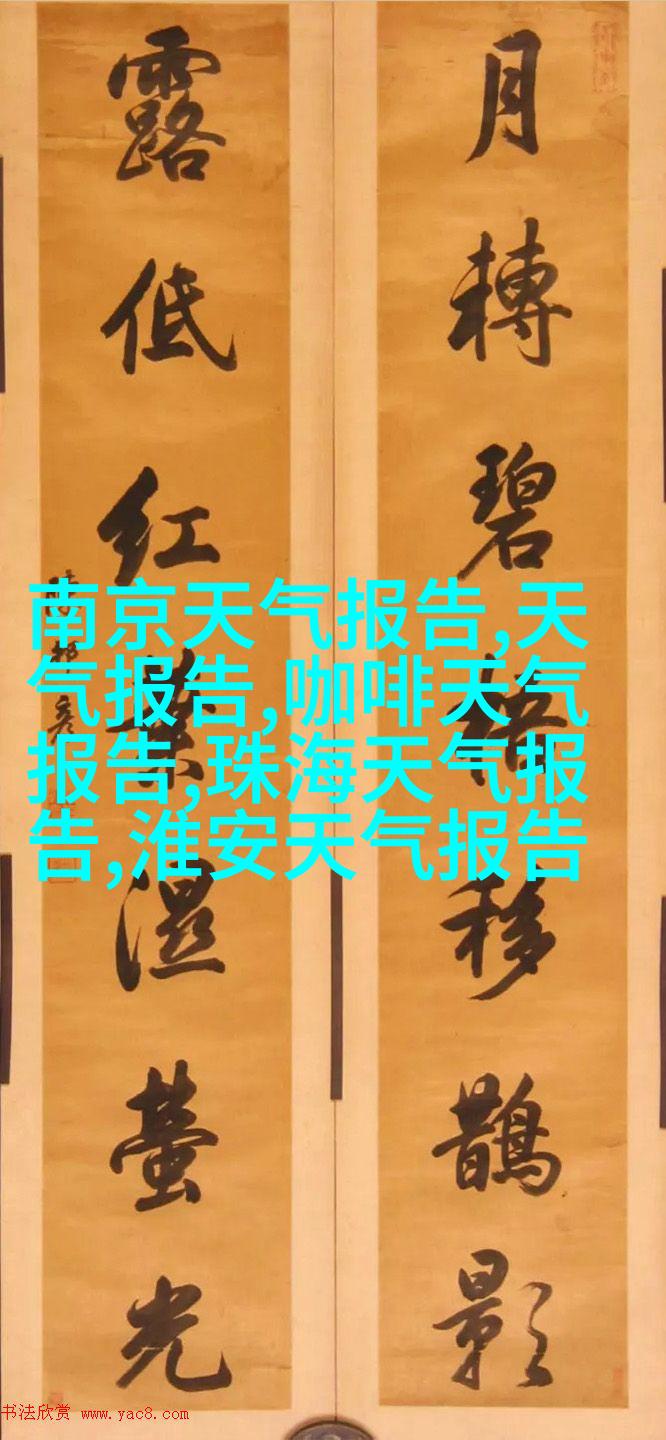 月轉碧梧移鵲影
露低红葉濕螢光
陳邦彦
南京天气报告,天
气报告,咖啡天气
报告,珠海天气报
告,淮安天气报告
书法欣赏 www.yac8.com